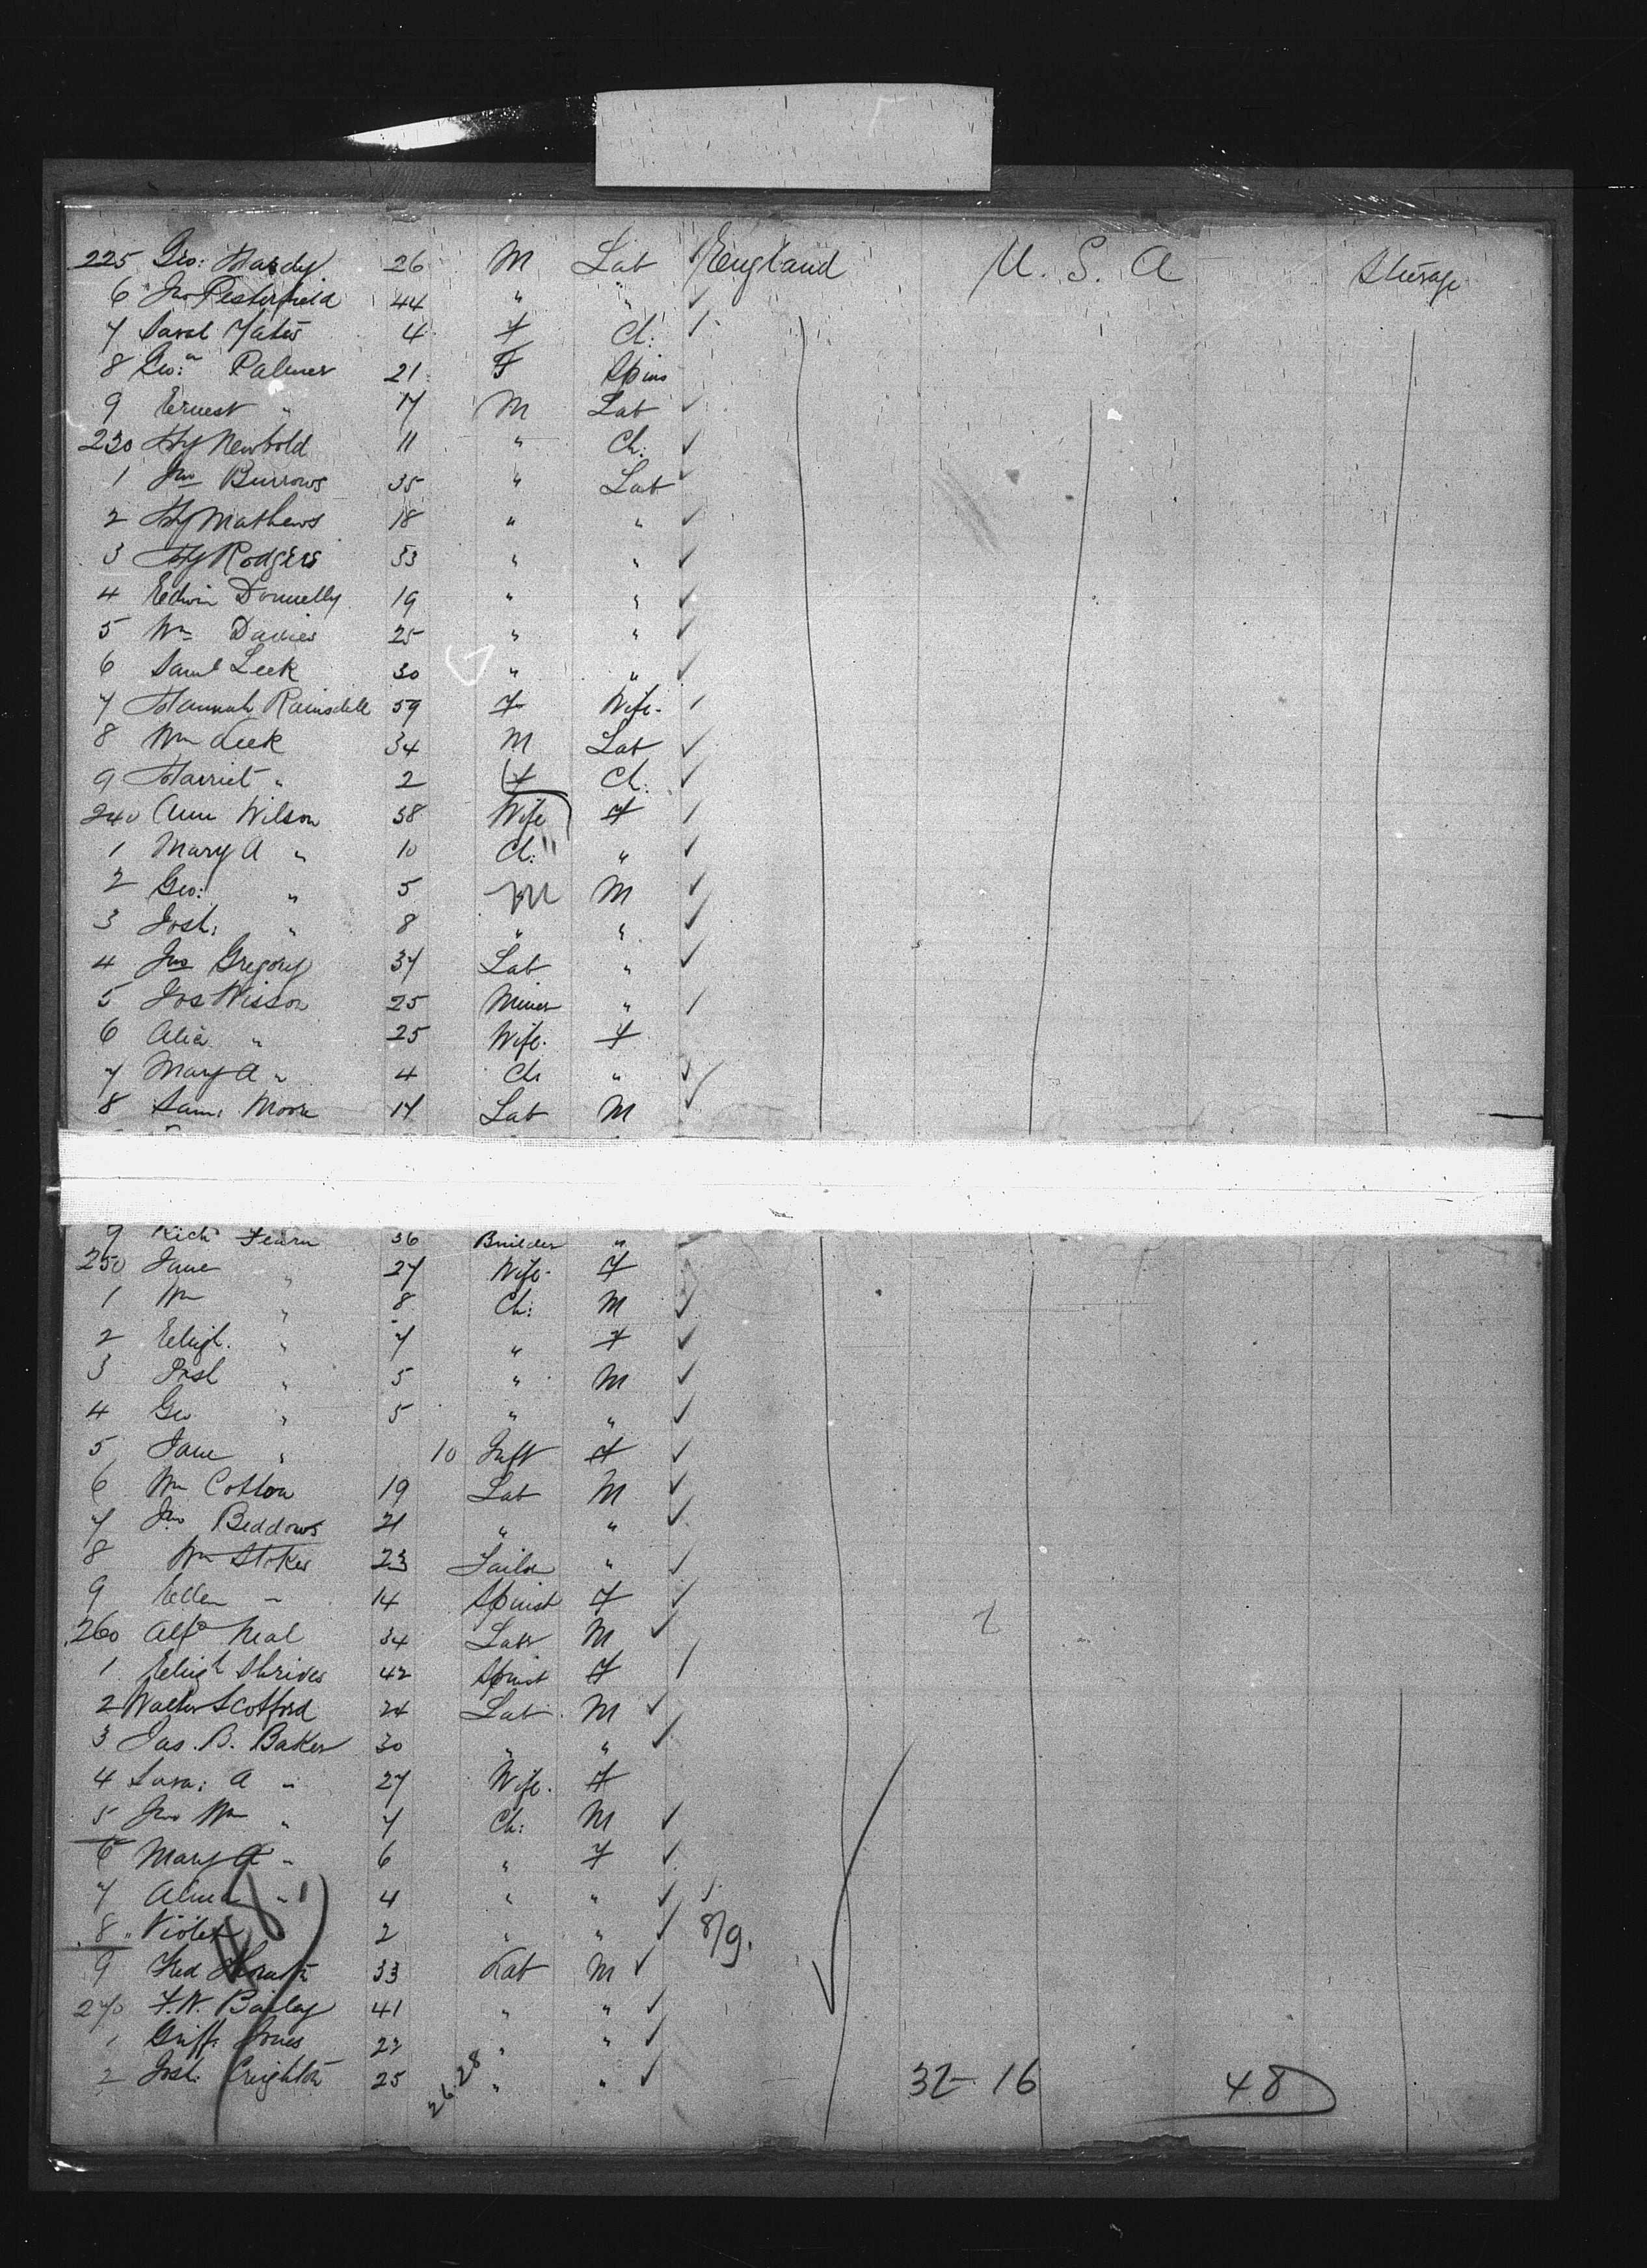 225 Geo: Hardy 26 M Lab England U. S. A Steerage
6 Jno Pesterfield 44 " "
7 Sarah Yates 4 F Ch:
8 Geo:a Palmer 21 F Spins
9 Ernest " 17 M Lab
230 Hy Newbold 11 " Ch:
1 Jno Burrows 35 " Lab
2 Hy Mathews 18 " "
3 Hy Rodgers 33 " "
4 Edwin Donnelly 19 " "
5 Wm Davies 25 " "
6 Saml Leek 30 " "
7 Hannah Rainsdell 59 F Wife
8 Wm Leek 34 M Lab
9 Harriet " 2 F Ch:
240 Ann Wilson 38 Wife F
1 Mary A " 10 Ch: "
2 Geo: " 5 M
3 Josh: " 8 " "
4 Jno Gregory 37 Lab "
5 Jos Wisson 25 Miner "
6 Alice " 25 Wife F
7 Mary A " 4 Ch "
8 Sam: Moore 17 Lab M
9 Richd Fearn 36 Builder "
250 Jane " 27 Wife F
1 Wm " 8 Ch: M
2 Elizh. " 7 " F
3 Josh " 5 " M
4 Geo " 5 " "
5 Jane " 10 Inft F
6 Wm Cotton 19 Lab M
7 Jno Beddows 21 " "
8 Wm Stokes 23 Tailor "
9 Ellen " 14 Spinst F
260 Alfd Neal 34 Labr M
1 Elizh Shrives 42 Spinst F
2 Walter Scotford 24 Lab M
3 Jas. B. Baker 30 " "
4 Sara: A " 27 Wife F
5 Jno Wm " 7 Ch: M
6 Mary A " 6 " F
7 Alma " 4 " "
8 " Violet 2 " " 8/9.
9 Fred 33 Lab M
270 F. W. Bailey 41 " "
1 Griff: Jones 22 " "
2 Josh: Creighton 25 " "
26.28
32 - 16 48